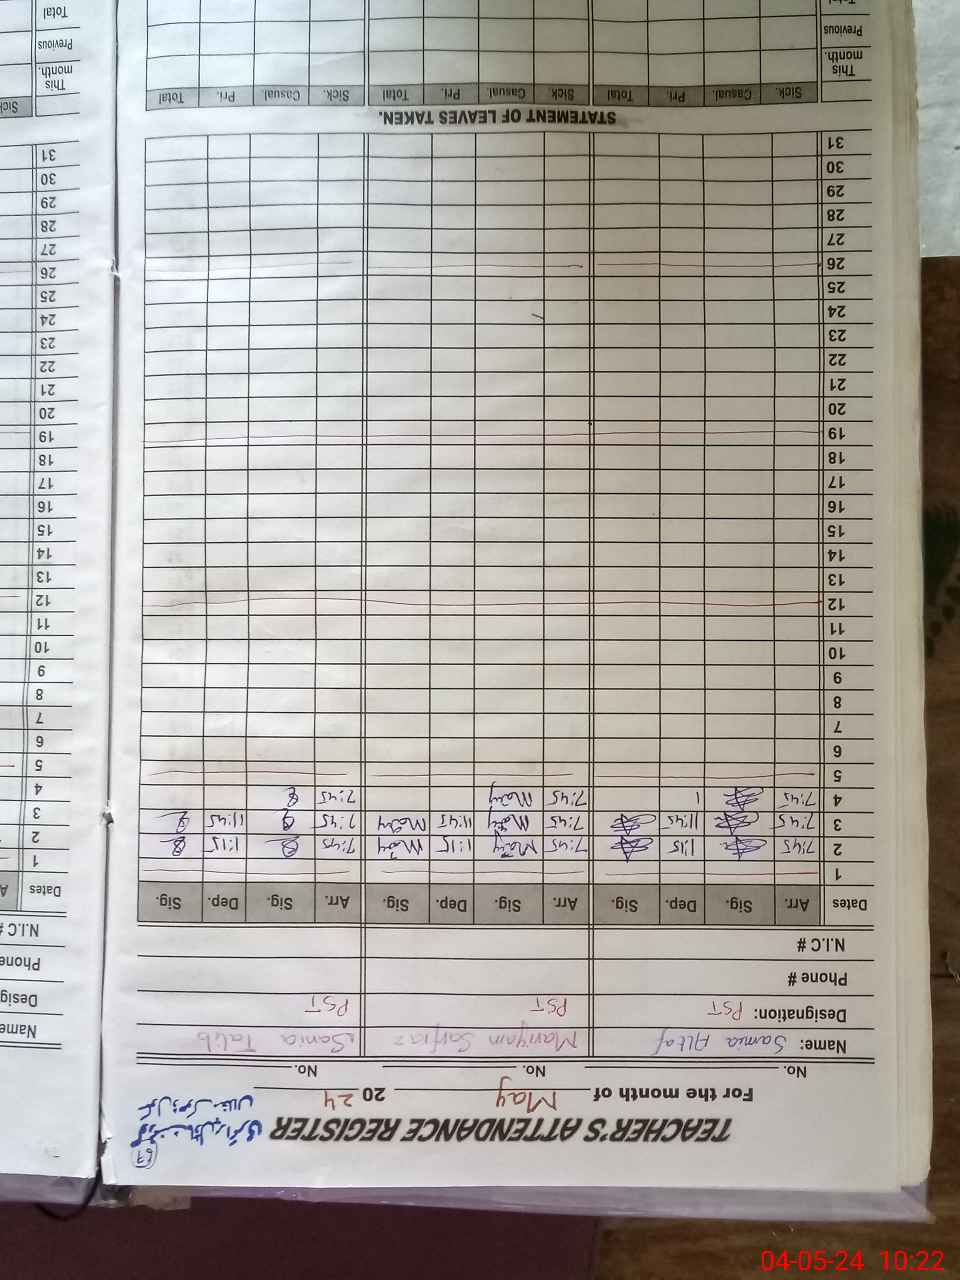 TEACHER'S ATTENDANCE REGISTER
67
For the month of May 2024
No. No. No.
Name: Samia Altaf Mariyam Sarfraz Sania Talib
Designation: PST PST PST
Phone #
N.I.C #
Dates Arr. Sig. Dep. Sig. Arr. Sig. Dep. Sig. Arr. Sig. Dep. Sig.
1
2 7:45 1:15 7:45 Mary 1:15 Mary 7:45 1:15
3 7:45 11:45 7:45 Mary 11:45 Mary 7:45 11:45
4 7:45 1 7:45 Mary 7:45
5
6
7
8
9
10
11
12
13
14
15
16
17
18
19
20
21
22
23
24
25
26
27
28
29
30
31
STATEMENT OF LEAVES TAKEN.
Sick. Casual. Pri. Total Sick. Casual. Pri. Total Sick. Casual Pri. Total
This month.
Previous
Total
Name
Desig
Phone
N.I.C #
Dates A
1
2
3
4
5
6
7
8
9
10
11
12
13
14
15
16
17
18
19
20
21
22
23
24
25
26
27
28
29
30
31
Sick
This month.
Previous
Total
04-05-24 10:22